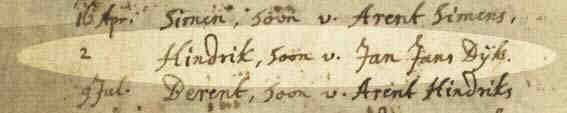 16 Apr: Simen, soon v. Arent Simens,
2 Hindrik, soon v. Jan Jans Dyk.
9 Jul. Berent, soon v. Arent Hindriks